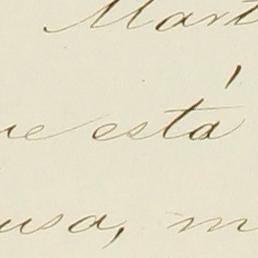 Mart
ue está
usa, m